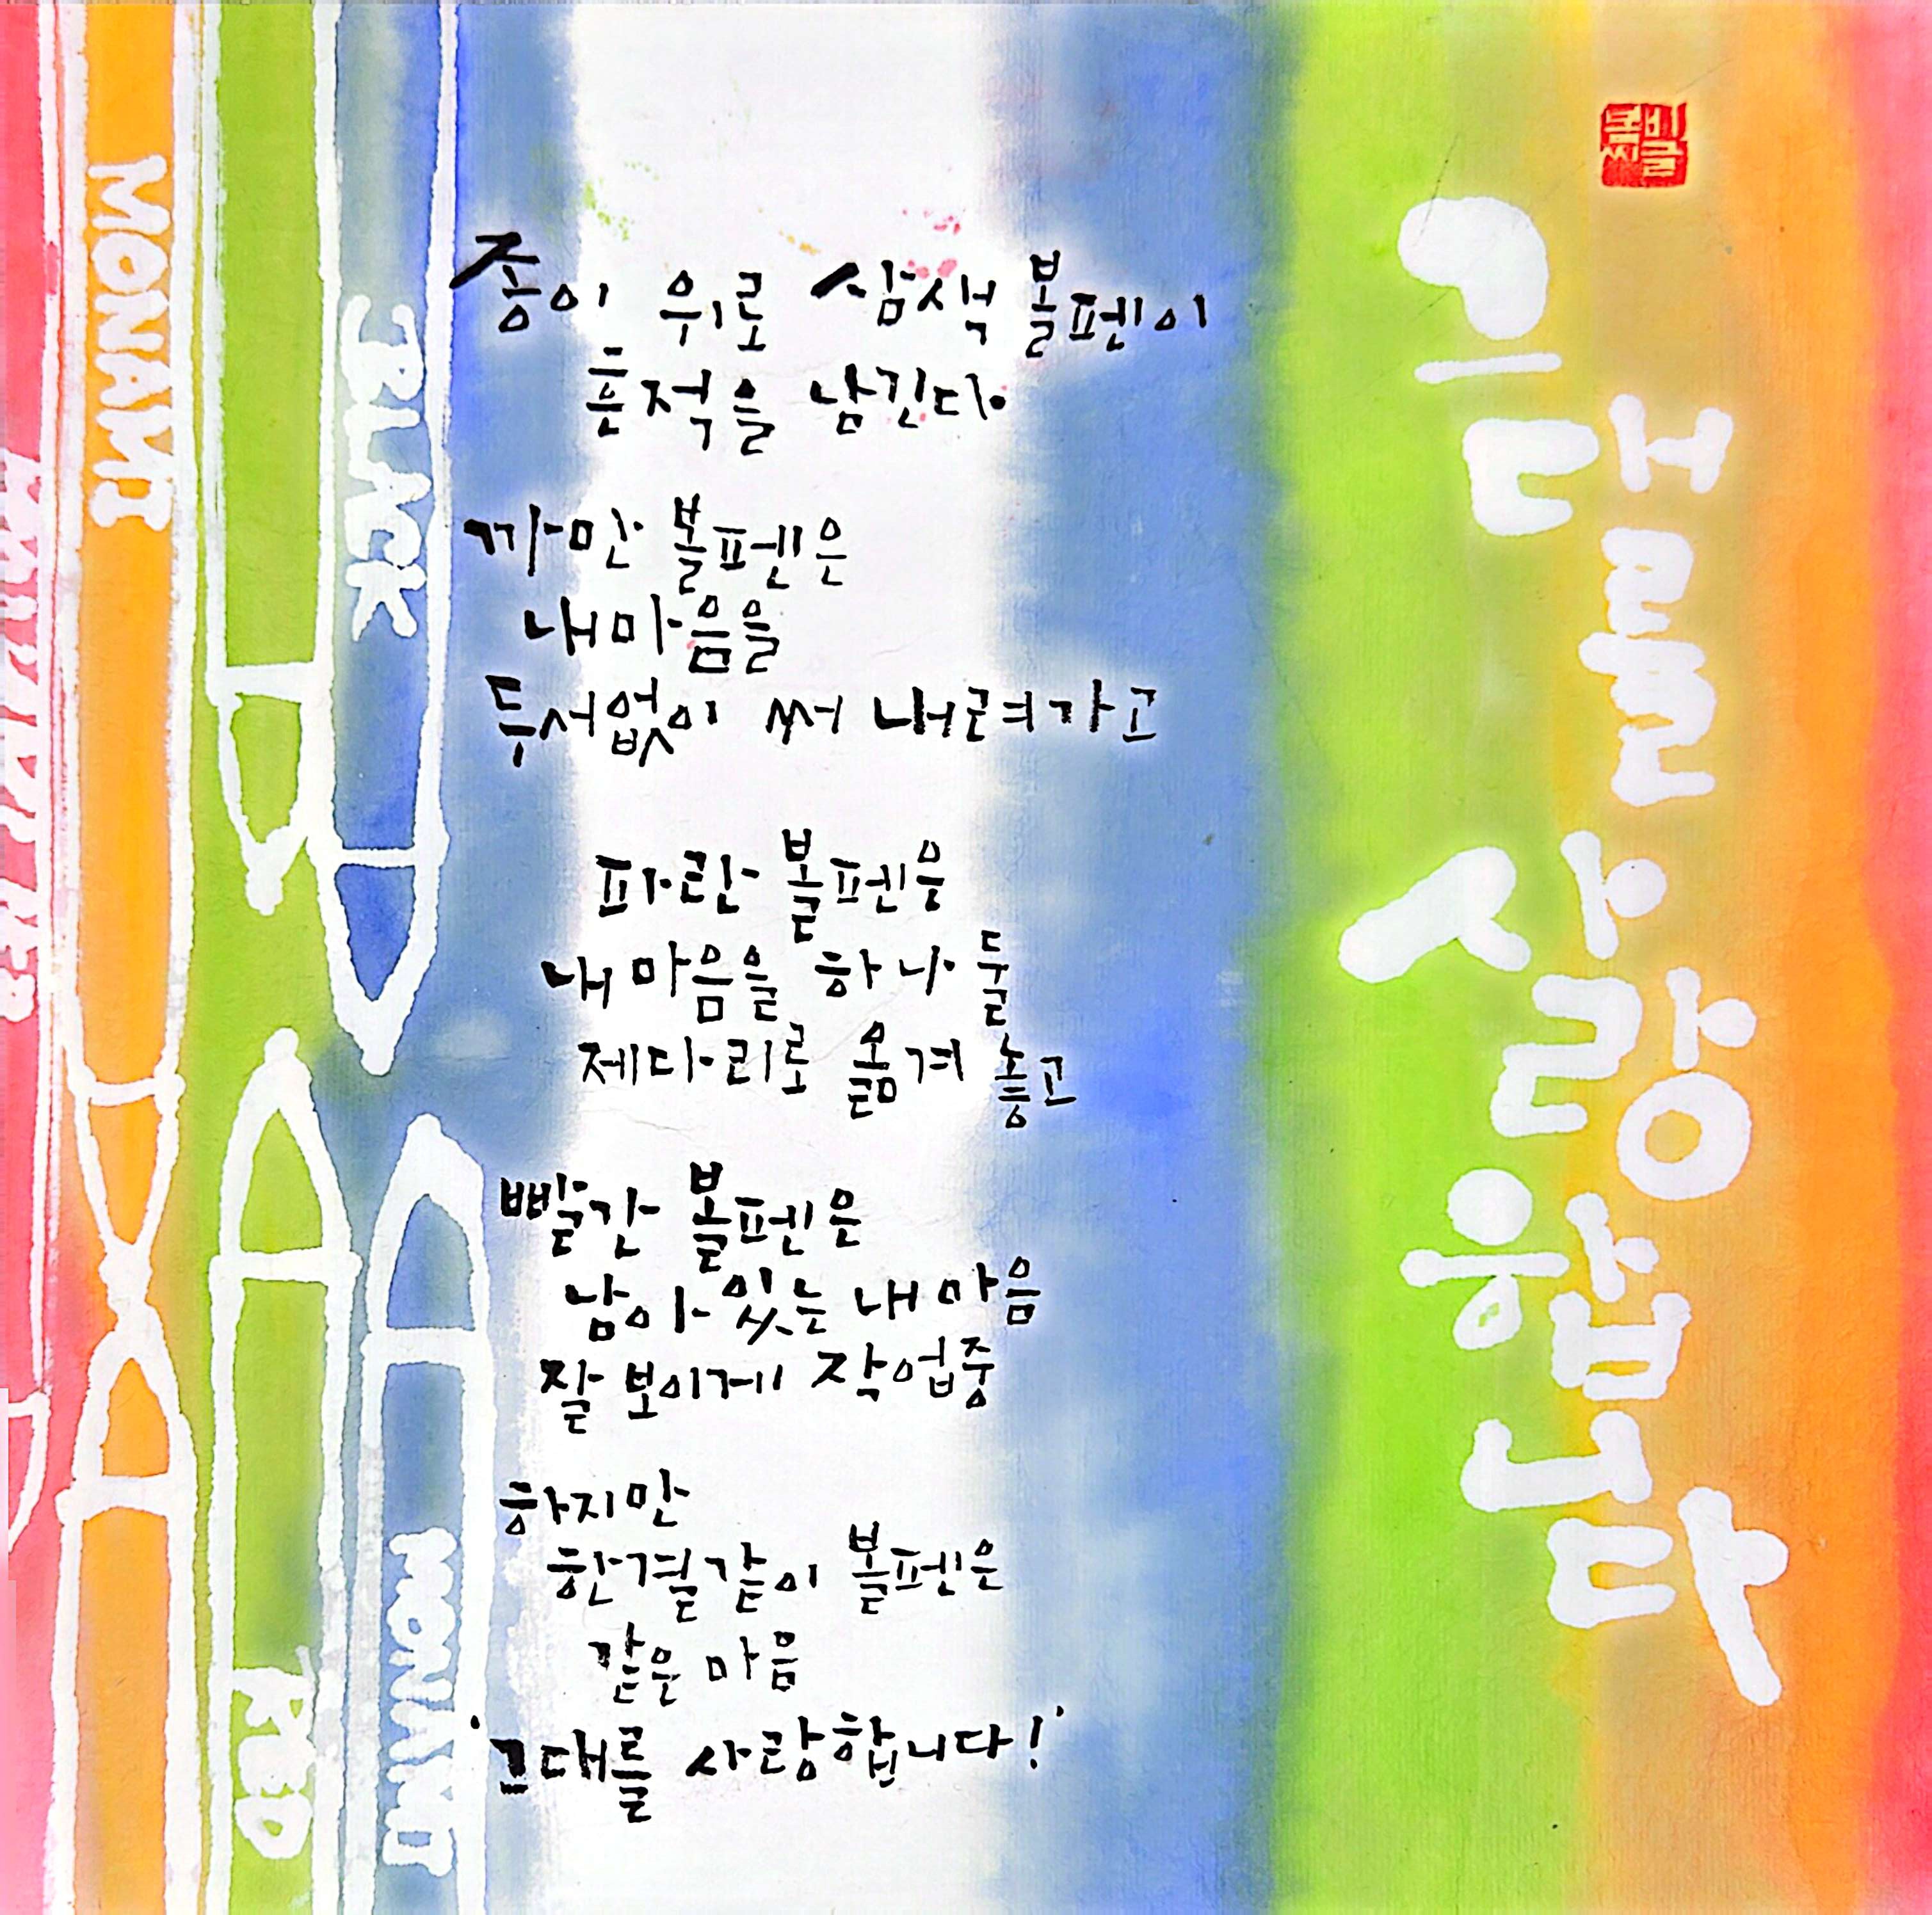 그대를 사랑합니다
종이 위로 삼색 볼펜이
흔적을 남긴다
까만 볼펜은
내마음을
두서없이 써 내려가고
파란 볼펜은
내 마음을 하나 둘
제다리로 옮겨 놓고
빨간 볼펜은
남아있는 내 마음
잘 보이게 작업중
하지만
한결같이 볼펜은
같은 마음
'그대를 사랑합니다!'
MONAMI
BLACK
RED
MONAMI